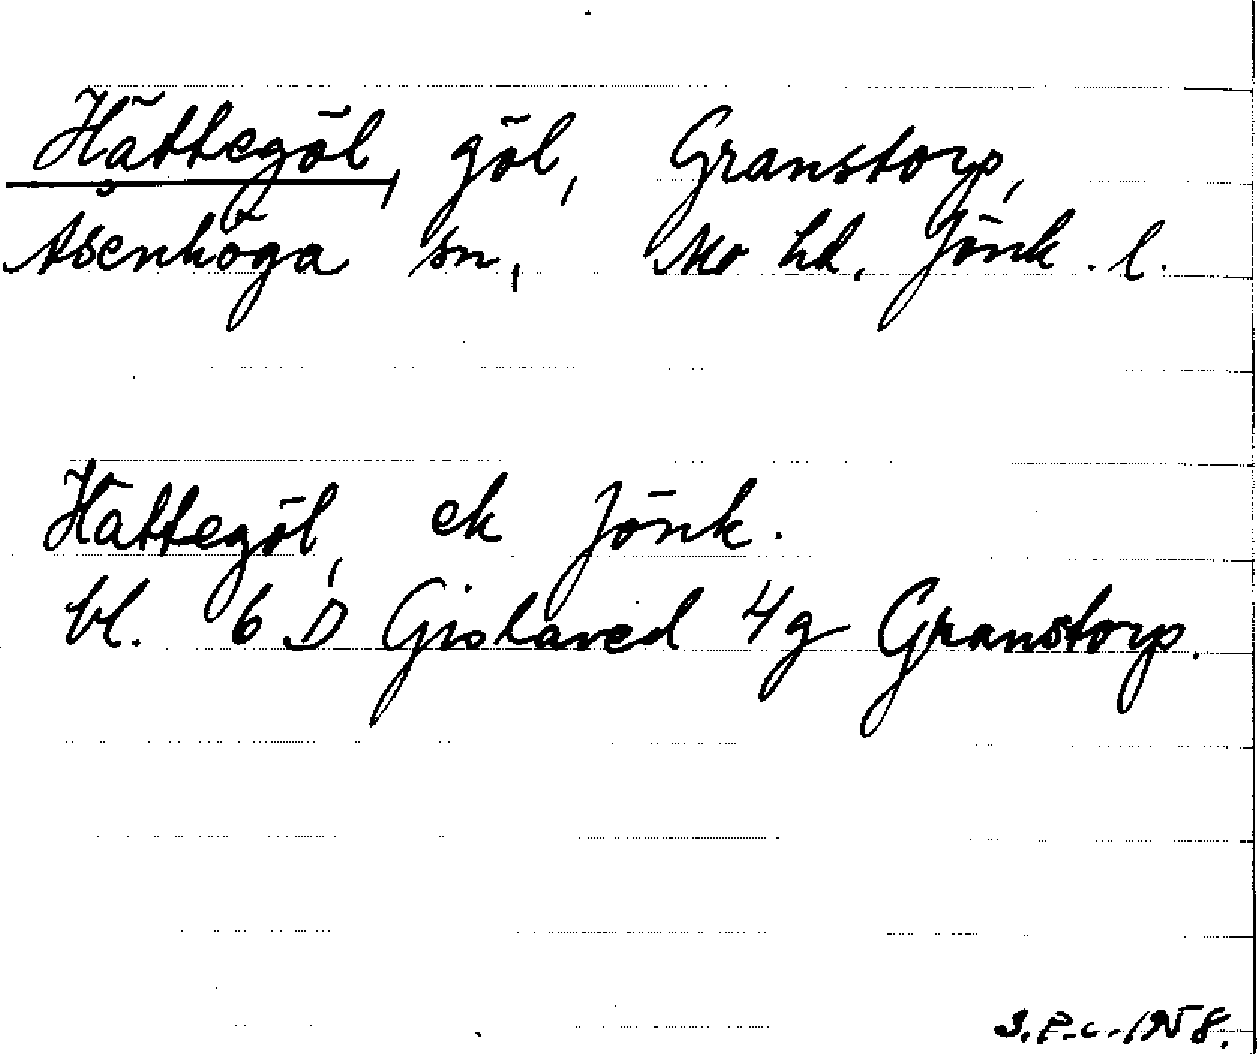 Hättegöl, göl, Granstorp,
Åsenhöga sn, Mo hd. Jönk. l.
Hättegöl, ek Jönk.
bl. 6 D Gislaved 4g Granstorp.
S.P.C. 1958.